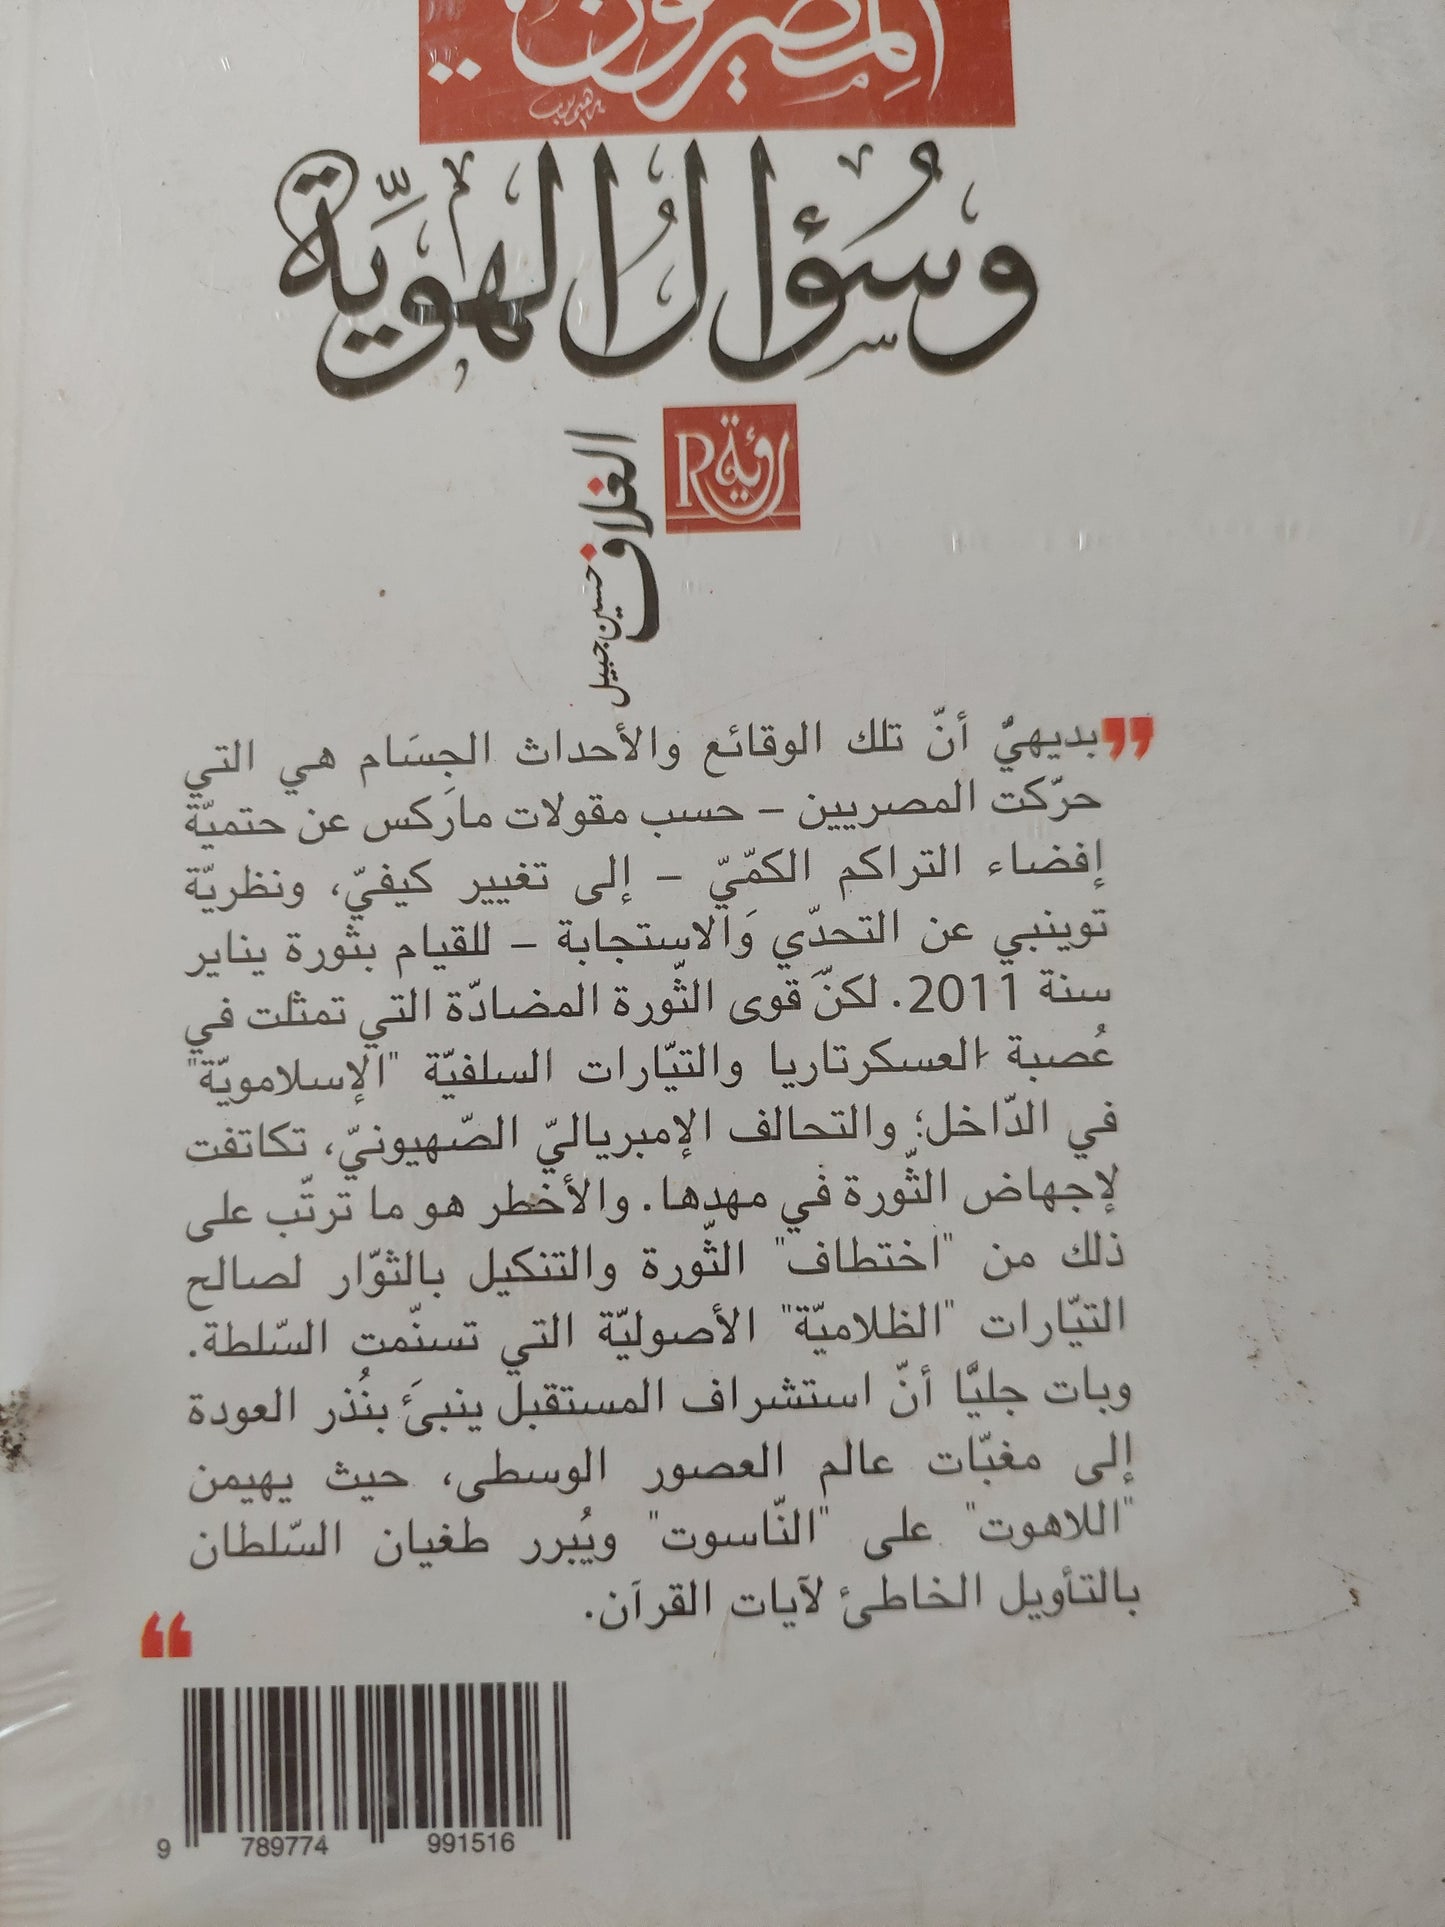 المصريون..
وسُؤالُ الهويّة
رؤية R
الغلاف
حسين جبيل
بديهيٌ أنّ تلك الوقائع والأحداث الجِسَام هي التي
حرّكت المصريين – حسب مقولات ماركس عن حتميّة
إفضاء التراكم الكمّيّ – إلى تغيير كيفيّ، ونظريّة
توينبي عن التحدّي وَالاستجابة – للقيام بثورة يناير
سنة 2011. لكنّ قوى الثّورة المضادّة التي تمثلت في
عُصبة العسكرتاريا والتيّارات السلفيّة "الإسلامويّة"
في الدّاخل؛ والتحالف الإمبرياليّ الصّهيونيّ، تكاتفت
لإجهاض الثّورة في مهدها. والأخطر هو ما ترتّب على
ذلك من "اختطاف" الثّورة والتنكيل بالثوّار لصالح
التيّارات "الظلاميّة" الأصوليّة التي تسنّمت السّلطة.
وبات جليًّا أنّ استشراف المستقبل ينبئَ بنُذر العودة
إلى مغبّات عالم العصور الوسطى، حيث يهيمن
"اللاهوت" على "النّاسوت" ويُبرر طغيان السّلطان
بالتأويل الخاطئ لآيات القرآن.
9 789774 991516